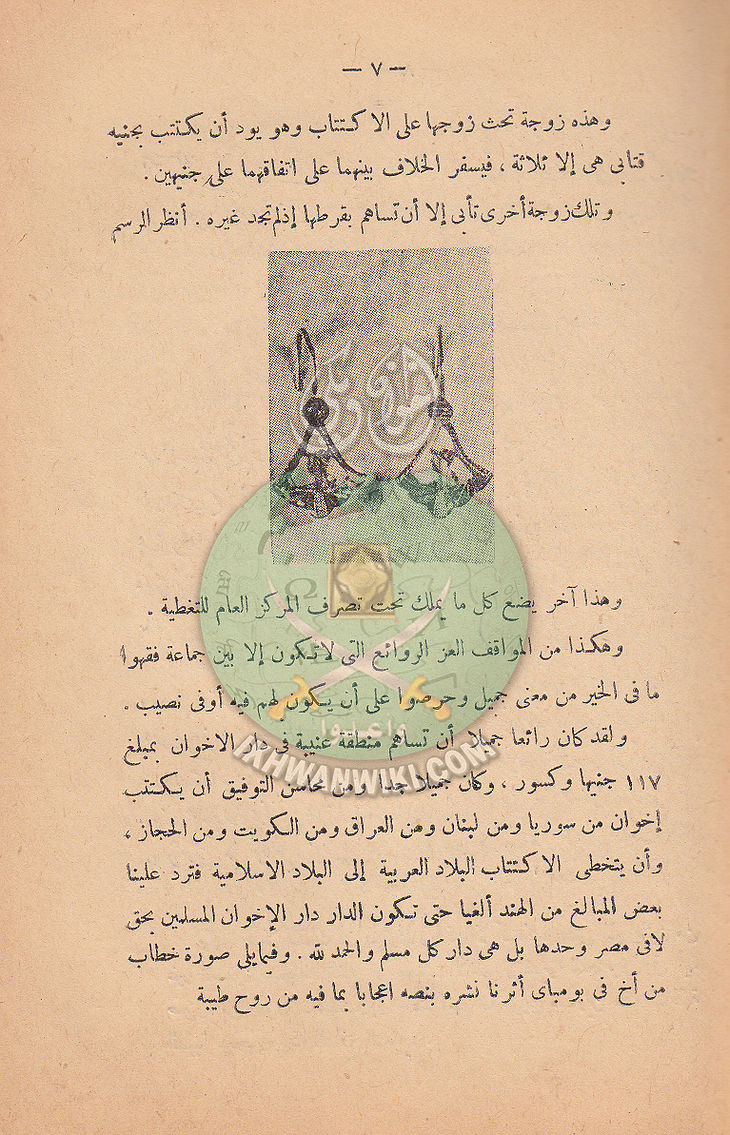 — ٧ —
وهذه زوجة تحث زوجها على الاكتتاب وهو يود أن يكتتب بجنيه
فتابى هى إلا ثلاثة ، فيسفر الخلاف بينهما على اتفاقهما على جنيهين .
وتلك زوجة أخرى تأبى إلا أن تساهم بقرطها إذ لم تجد غيره . أنظر الرسم
إخوان ويكي
وهذا آخر يضع كل ما يملك تحت تصرف المركز العام للتغطية .
وهكذا من المواقف الغر الروائع التى لا تكون إلا بين جماعة فقهوا
ما فى الخير من معنى جميل وحرصوا على أن يكون لهم فيه أوفى نصيب .
ولقد كان رائعا جميلا أن تساهم منطقة عنيبة فى دار الاخوان بمبلغ
١١٧ جنيها وكسور ، وكان جميلا جدا ومن محاسن التوفيق أن يكتتب
إخوان من سوريا ومن لبنان ومن العراق ومن الكويت ومن الحجاز ،
وأن يتخطى الاكتتاب البلاد العربية إلى البلاد الاسلامية فترد علينا
بعض المبالغ من الهند ألغيا حتى تكون الدار دار الإخوان المسلمين بحق
لافى مصر وحدها بل هى دار كل مسلم والحمد لله . وفيمايلى صورة خطاب
من أخ فى بومباى أثرنا نشره بنصه اعجابا بما فيه من روح طيبة
واعدوا
IKHWANWIKI.COM